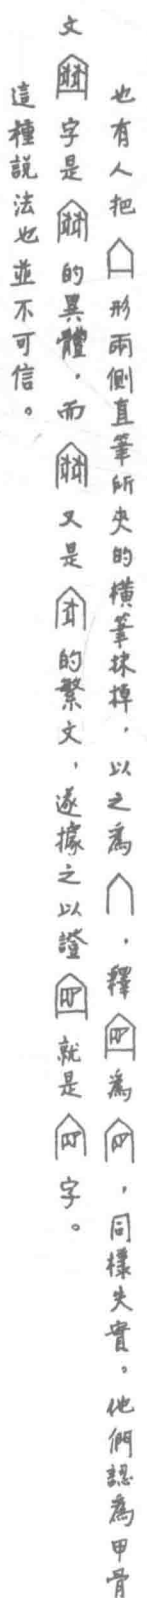 也有人把形兩側直筆所夾的橫筆抹掉，以之為，釋為，同樣失實。他們認為甲骨
文字是的異體，而又是的繁文，遂據之以證就是字。
這種説法也並不可信。